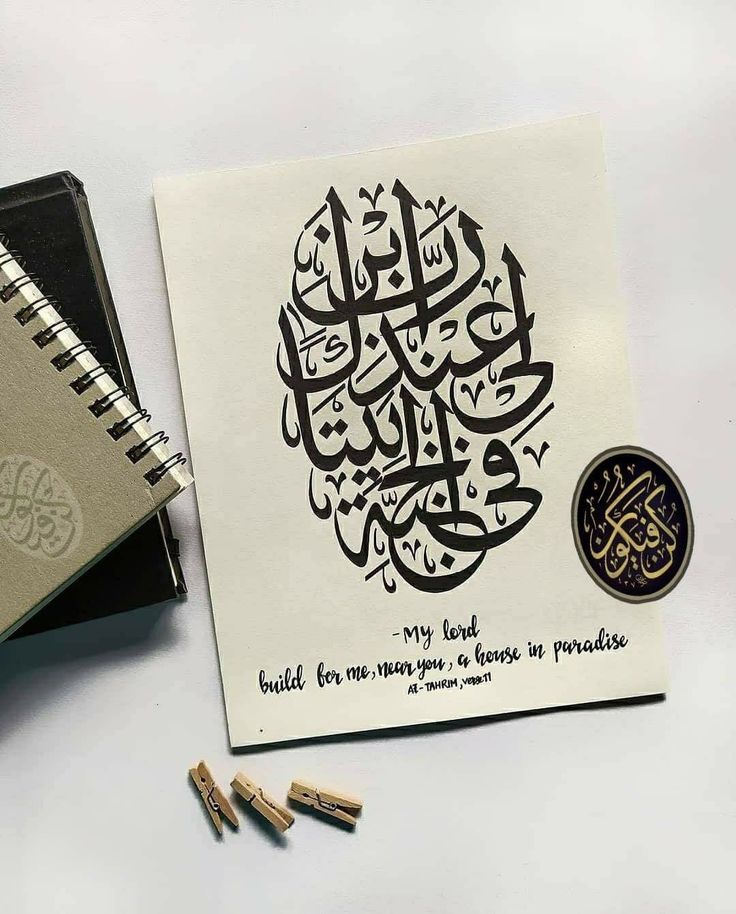 رَبِّ ابْنِ
لِي عِنْدَكَ
بَيْتًا
فِي الْجَنَّةِ
كُنْ فَيَكُونُ
-My lord
build for me, near you, a house in paradise
AT-TAHRIM, verse:11